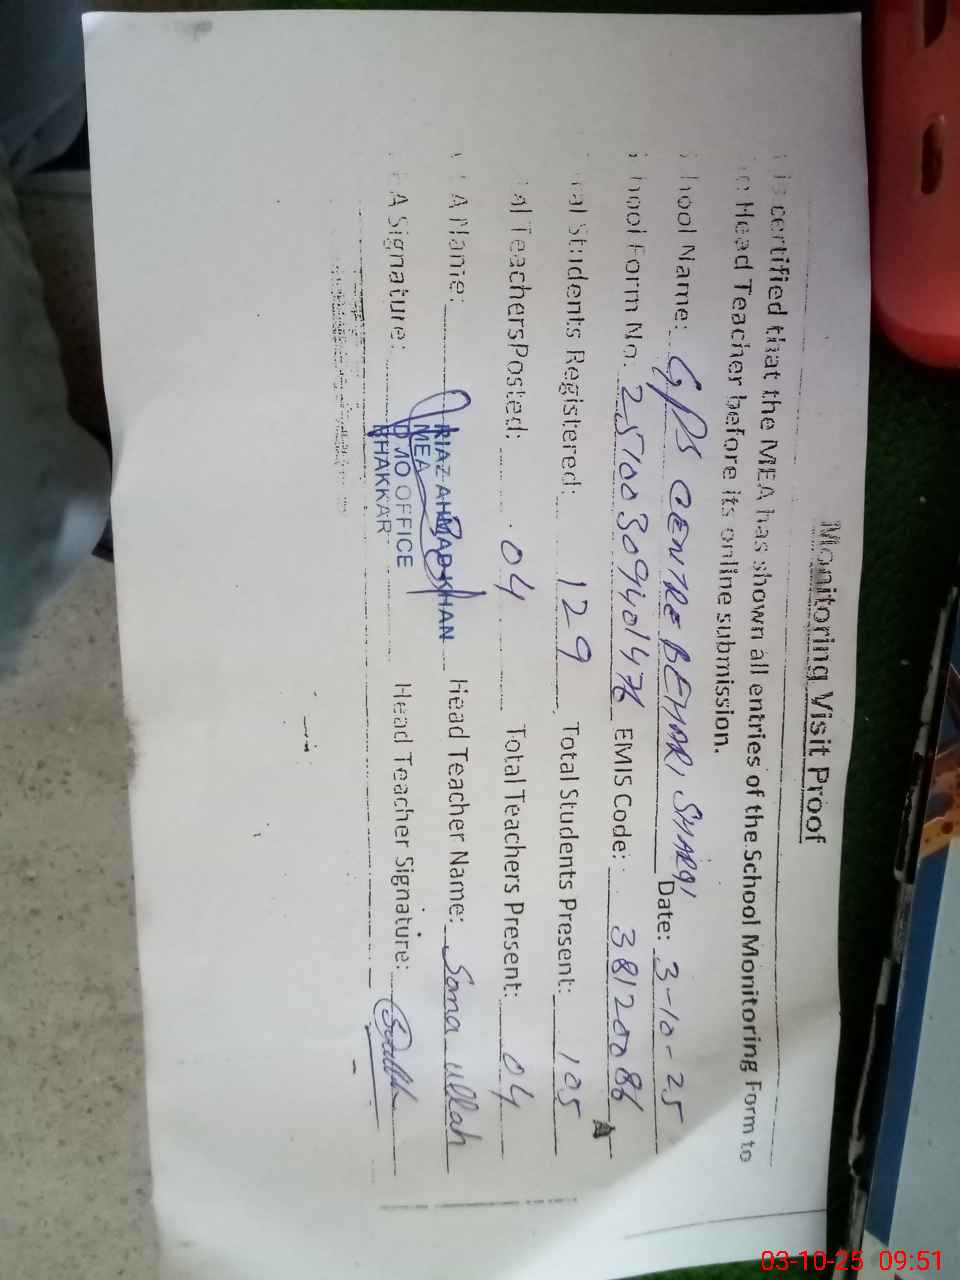 Monitoring Visit Proof
is certified that the MEA has shown all entries of the School Monitoring Form to
Head Teacher before its online submission.
hool Name: GPS CENTRE BEHARI SHARQI Date: 3-10-25
hool Form No. 2510030940147 EMIS Code: 38120086
al Students Registered: 129 Total Students Present: 105
al Teachers Posted: 04 Total Teachers Present: 04
A Name: RIAZ AHMAD KHAN Head Teacher Name: Sana ullah
MEA
A Signature: DMO OFFICE Head Teacher Signature:
BHAKKAR
03-10-25 09:51